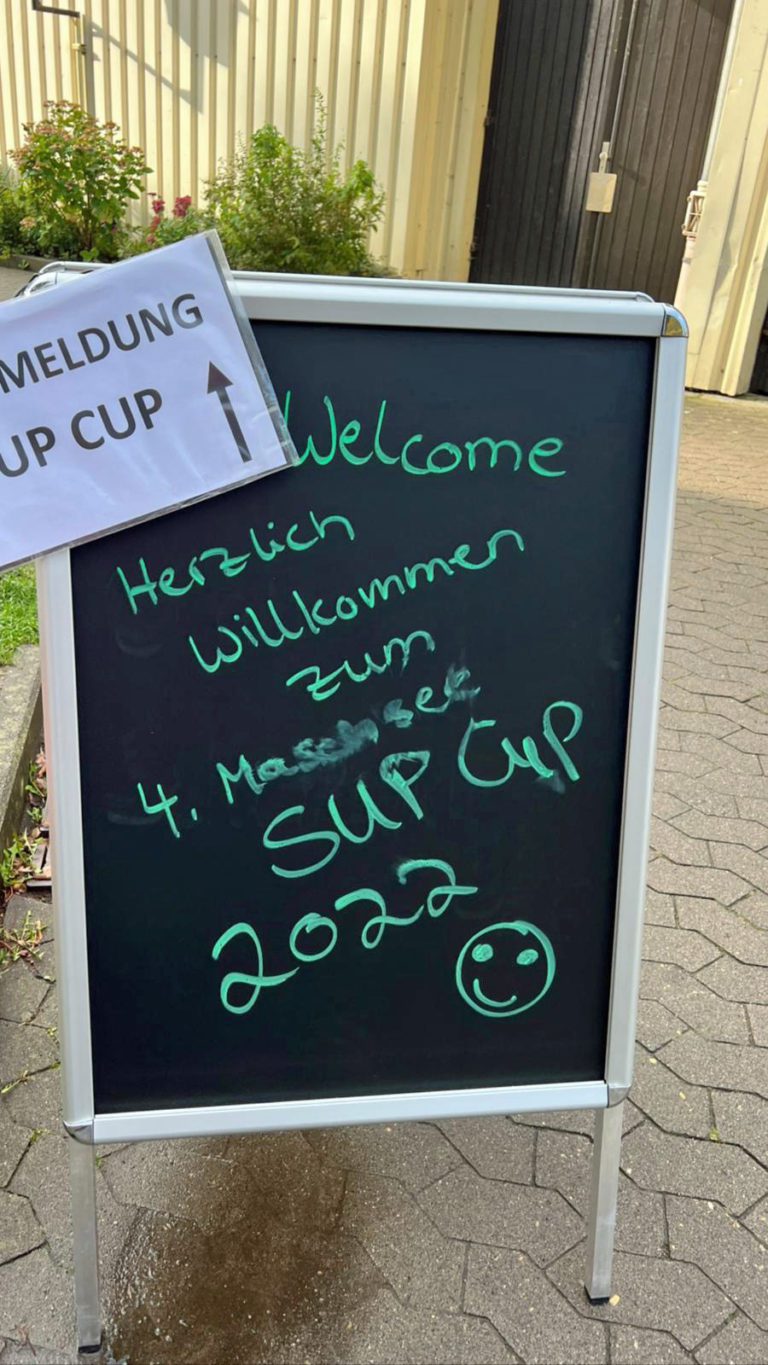 MELDUNG
UP CUP
Welcome
Herzlich
Willkommen
zum
4. Maschsee
SUP Cup
2022